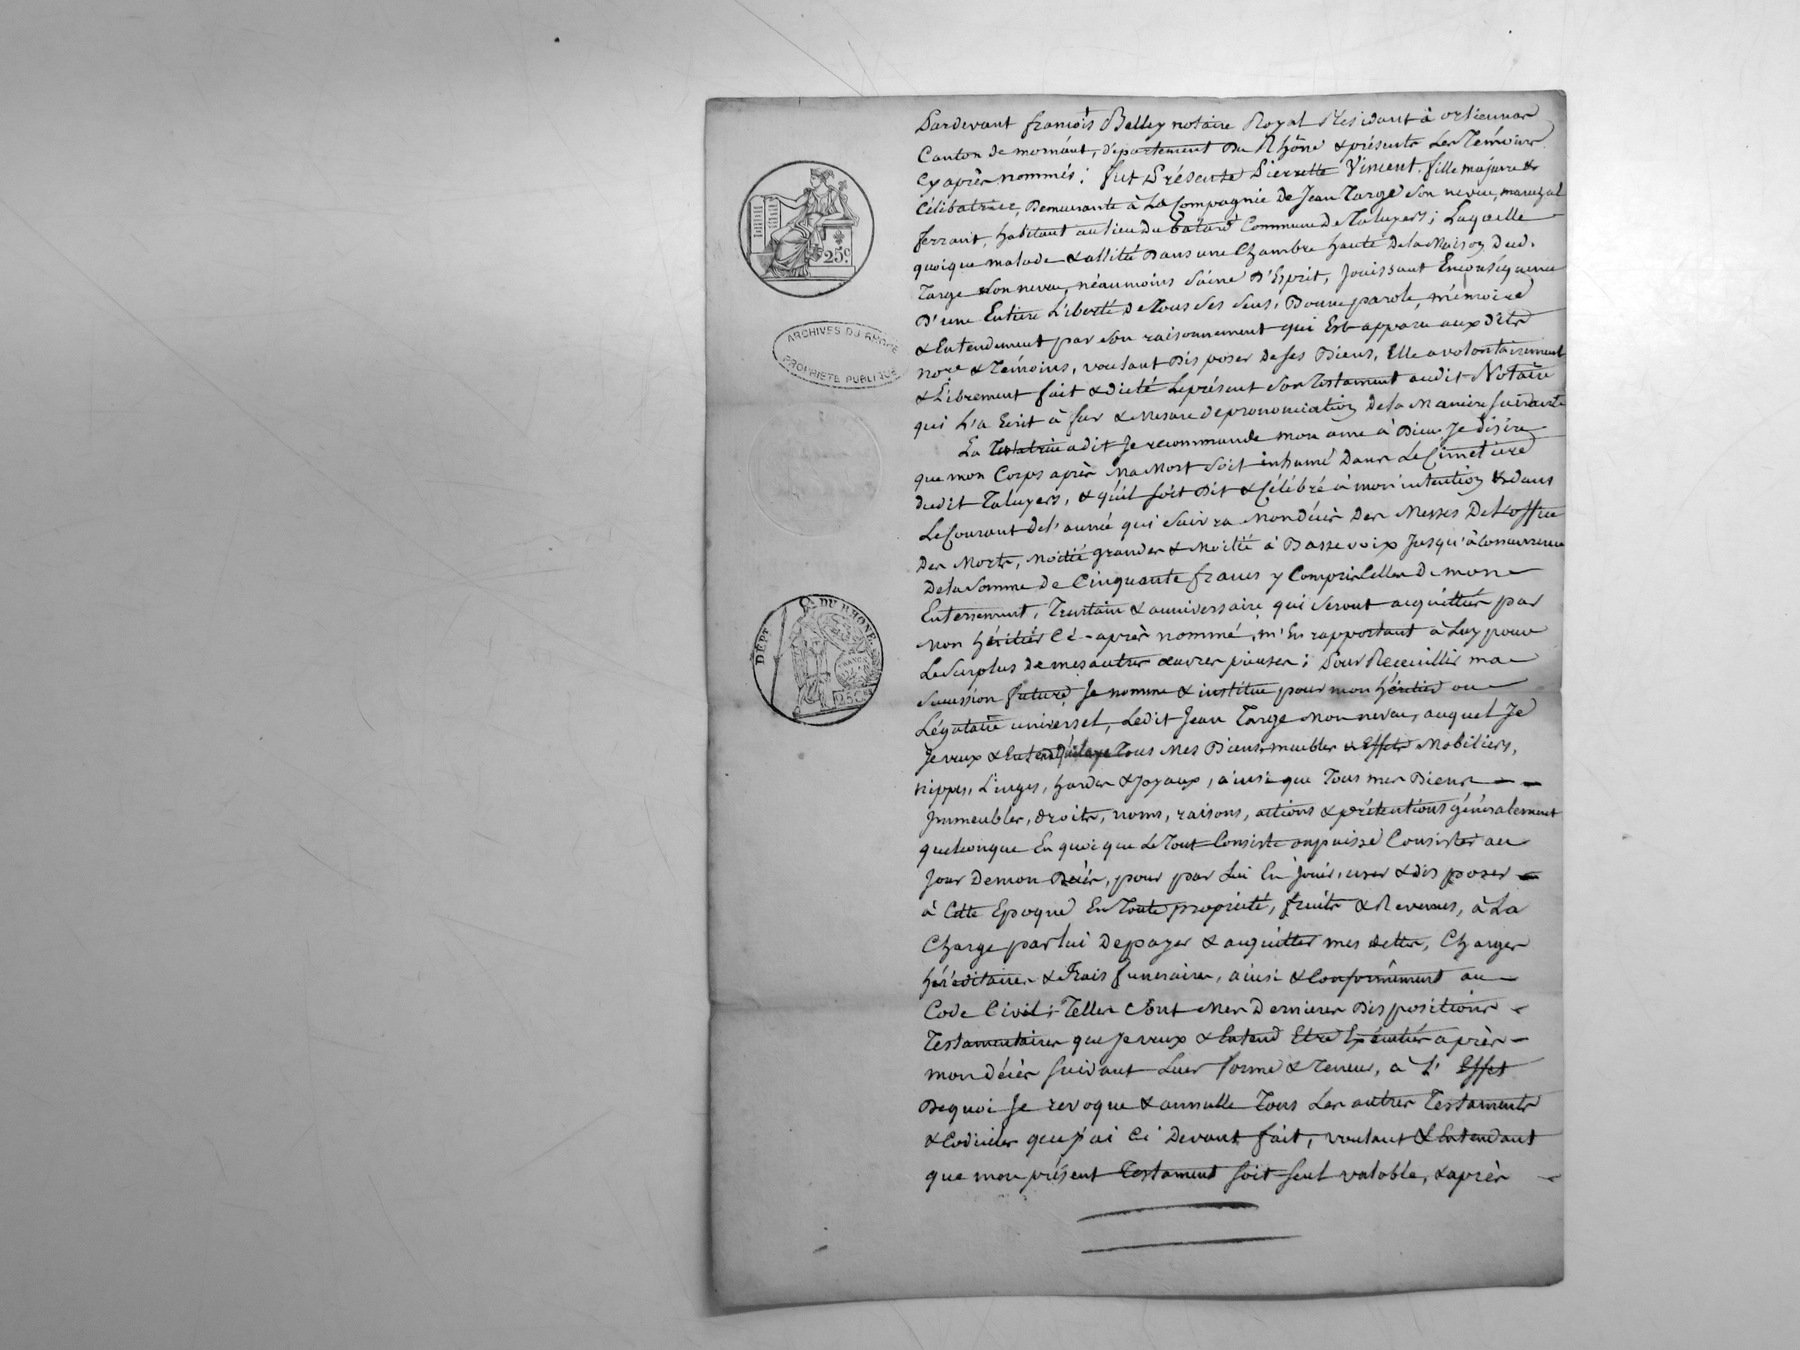 25.c
ARCHIVES DU RHONE
PROPRIÉTÉ PUBLIQUE
DÉPT. DU RHONE.
25C.
Pardevant françois Belley notaire Royal Résidant à orliennas
Canton de mornant, département Du Rhône & présents Les Témoins
Cy après nommés; fut Présente Pierrette Vincent, fille majeure &
Célibatrice, Demeurante à La Compagnie De Jean Targe Son neveu, marechal
ferrant, habitant au lieu du batard Commune De Taluyers; Laquelle
quoique malade & allitée Dans une Chambre haute De la Maison Dud.
Targe Son neveu, néaumoins Saine D'Esprit, Jouissant En conséquence
D'une Entiere Liberté De Tous Ses Sens, Bonne parole, mémoire
& Entendement par Son raisonnement qui Est apparu aux Dits
nore & Témoins, voulant Disposer De Ses Biens, Elle a volontairement
& Librement fait & dicté Le présent Son Testament audit Notaire
qui L'a Ecrit à fur & Mesure de prononciation De la Maniere Suivante
La Testatrice a dit Je recommande mon ame à Dieu, Je désire
que mon Corps après Ma Mort Soit inhumé Dans Le Cimetiere
dudit Taluyers, & qu'il Soit Dit & Célébré à mon intention & dans
Le Courant de l'année qui Suivra Mon Décès Des Messes De L'office
Des Morts, Moitié grandes & Moitié à Basse voix Jusqu'à Concurrence
De la Somme de Cinquante francs y Compris Celles De mon
Enterrement, Trentain & anniversaire qui Seront acquittés par
Mon héritier Ci-après nommé, m'En rapportant à Luy pour
Le Surplus de mes autres œuvres pieuses; Pour Receuillir ma
Sucession future, Je nomme & institue pour mon héritier ou
Légataire universel, Ledit Jean Targe Mon neveu, auquel Je
Je veux & Entend qu'il aye Tous Mes Biens meubles & Effets Mobiliers,
nippes, Linges, hardes & Joyaux, ainsi que Tous mes Biens
Immeubles, droits, noms, raisons, actions & prétentions généralement
quelconque En quoi que Le Tout Consiste ou puisse Consister au
Jour De mon Décès, pour par Lui En Jouir, user & disposer
à Cette Epoque En Toute propriété, fruits & Revenus, à La
Charge par lui De payer & acquitter mes dettes, Charges
héréditaires & Frais funeraires, ainsi & Conformément au
Code Civil; Telles Sont Mes Dernieres Dispositions
Testamentaires que Je veux & Entend Etre Exécutées après
mon décès Suivant Leur forme & Teneur, à L'Effet
De quoi Je revoque & annulle Tous Les autres Testaments
& Codiciles que j'ai Ci Devant fait, voulant & Entendant
que mon présent Testament Soit Seul valable, & après